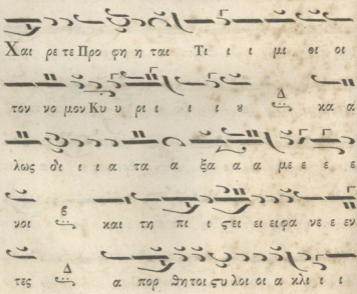 Χαι ρε τε Προ φη η ται Τι ι ι μι θι οι
τον νο μον Κυ υ ρι ι ι ι υ Δ κα α
λως δι ι ι α τα α ξα α α με ε ε ε
νοι ϐ και τη πι ι ϛει ει ει ει φα νε ε εν
τες Δ α πορ θη τοι ϛυ λοι οι α κλι ι ι